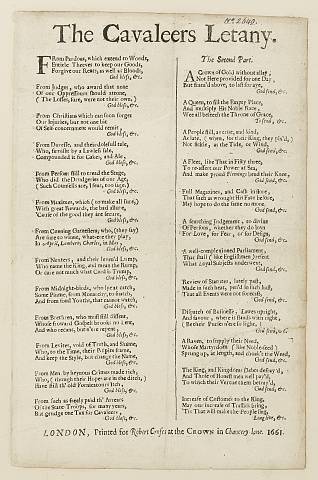 The Cavaleers Letany.
FRom Pardons, which extend to Woods,
Entitle Theeves to keep our Goods,
Forgive our Rents, as well as Bloods,
God bless, &c.
From Judges, who award that none
Of our Oppressours should attone,
(The Losses, sure, were not their own,)
God bless, &c.
From Christians which can soon forget
Our Injuries, but not one bit
Of Self-concernment would remit,
God bless, &c.
From Duresse, and their dolefull tale,
Who, famisht by a lawless sale,
Compounded it for Cakes, and Ale,
God bless, &c.
From Persons still to tread the Stage,
Who did the Drudgeries of our Age,
(Such Counsells are, I fear, too sage.)
God bless, &c.
From Maximes, which (to make all sure,)
With great Rewards, the bad allure,
'Cause of the good they are secure,
God bless, &c.
From Cunning Gamesters, who, (they say)
Are sure to winne, what-ere they play,
In April, Lambert; Charles, in May,
God bless, &c.
From Neuters, and their lewd Trump,
Who name the King, and mean the Rump,
Or care not much what Card is Trump,
God bless, &c.
From Midnight-birds, who lye at catch,
Some Plume, from Monarchy, to snatch,
And from fond Youths, that cannot watch,
God bless, &c.
From Brethren, who must still dissent,
Whose froward Gospell brooks no Lent,
And who recant, but ne're repent,
God bless, &c.
From Levites, void of Truth, and Shame,
Who, to the Time, their Pulpits frame,
And keep the Style, but change the Name,
God bless, &c.
From Men, by heynous Crimes made rich,
Who, (though their Hopes are in the ditch,)
Have still th' old Fornicators Itch,
God bless, &c.
From such as freely paid th' Arrears
Of the State-Troops, for many years,
But grudge one Tax for Cavaleers,
God bless, &c.
The Second Part.
A Crown of Gold without allay,
Not Here provided for one Day,
But fram'd above, to last for aye,
God send, &c.
A Queen, to fill the Empty Place,
And multiply His Noble Race,
Wee all beseech the Throne of Grace,
To send, &c.
A People still, as true, and kind,
As late, (when for their King they pin'd,)
Not fickle, as the Tide, or Wind,
God send, &c.
A Fleet, like That in Fifty three,
To re-assert our Power at Sea,
And make proud Flemings bend their Knee,
God send, &c.
Full Magazines, and Cash in store,
That such as wrought His Fate before,
May hope to do the same no more,
God send, &c.
A searching Judgement, to divine
Of Persons, whether they do joyn
For Love, for Fear, or for Design,
God send, &c.
A well-complexioned Parliament,
That shall (like Englishmen) resent
What Loyal Subjects underwent,
God send, &c.
Review of Statutes, lately past,
Made in such heat, pen'd in such hast,
That all Events were not forecast,
God send, &c.
Dispatch of Businesse, Lawes upright,
And favour, where it stands with right,
(Be their Purses ne're so light,)
God send, &c.
A Raven, to supply their Need,
Whose Martyrdom (like Noble seed)
Sprung up, at length, and choak't the Weed,
God send, &c.
The King, and Kingdoms Debts defray'd,
And Those of Honest men well pay'd,
To which their Vertue them betray'd,
God send, &c.
Increase of Customes to the King
May our increase of Traffick bring,
'Tis That will make the People sing,
Long live, &c.
LONDON, Printed for Robert Crofts at the CROWN in Chancery-lane. 1661.